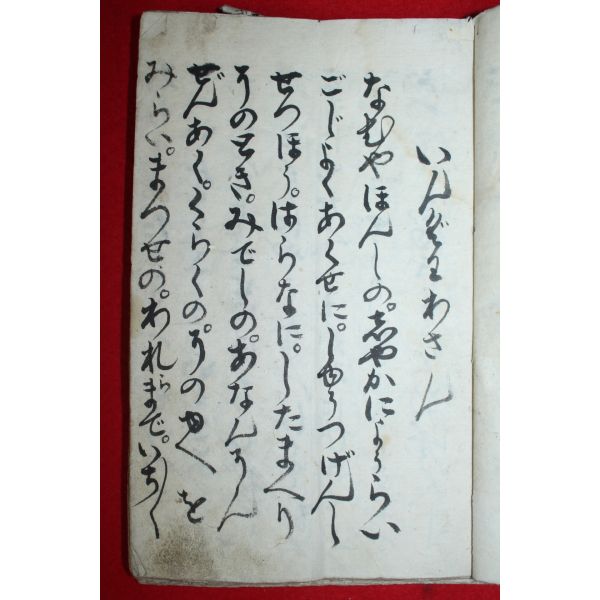 いんぐわわさん
なむやほんしの。志やかによらい
ごぢよくあくせに。しゆつげんし
せつほう。はらなに。したまへり
そのとき。みでしの。あなんそん
ぜんあく。くらくの。そのゆへを
みらい。まつせの。われらまで。いちく